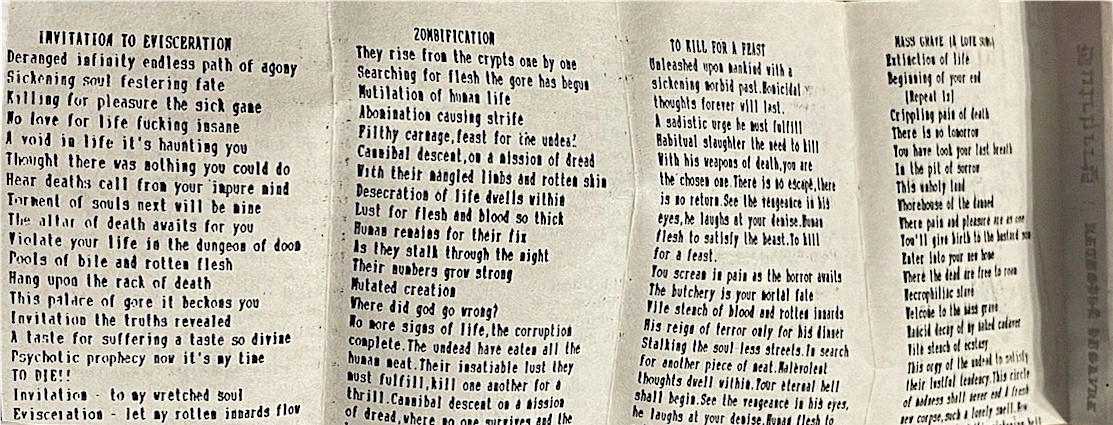 INVITATION TO EVISCERATION
Deranged infinity endless path of agony
Sickening soul festering fate
Killing for pleasure the sick game
No love for life fucking insane
A void in life it's haunting you
Thought there was nothing you could do
Hear deaths call from your impure mind
Torment of souls next will be mine
The altar of death awaits for you
Violate your life in the dungeon of doom
Pools of bile and rotten flesh
Hang upon the rack of death
This palace of gore it beckons you
Invitation the truths revealed
A taste for suffering a taste so divine
Psychotic prophecy now it's my time
TO DIE!!
Invitation - to my wretched soul
Evisceration - let my rotten innards flow
ZOMBIFICATION
They rise from the crypts one by one
Searching for flesh the gore has begun
Mutilation of human life
Abomination causing strife
Filthy carnage,feast for the undea
Cannibal descent,on a mission of dread
With their mangled limbs and rotten skin
Desecration of life dwells within
Lust for flesh and blood so thick
Human remains for their fix
As they stalk through the night
Their numbers grow strong
Mutated creation
Where did god go wrong?
No more signs of life,the corruption
complete.The undead have eaten all the
human meat.Their insatiable lust they
must fulfill,kill one another for a
thrill.Cannibal descent on a mission
of dread,where no one survives and the
TO KILL FOR A FEAST
Unleashed upon mankind with a
sickening morbid past.Homicidal
thoughts forever will last.
A sadistic urge he must fulfill
Habitual slaughter the need to kill
With his weapons of death,you are
the chosen one.There is no escape,there
is no return.See the vengeance in his
eyes,he laughs at your demise.Human
flesh to satisfy the beast.To kill
for a feast.
You scream in pain as the horror awaits
The butchery is your mortal fate
Vile stench of blood and rotten innards
His reign of terror only for his dinner
Stalking the soul less streets.In search
for another piece of meat.Malevolent
thoughts dwell within.Your eternal hell
shall begin.See the vengeance in his eyes,
he laughs at your demise.Human flesh to
MASS GRAVE (A LOVE SONG)
Extinction of life
Beginning of your end
(Repeat 1x)
Crippling pain of death
There is no tomorrow
You have took your last breath
In the pit of sorrow
This unholy land
Whorehouse of the damned
Where pain and pleasure are as one
You'll give birth to the bastard son
Enter into your new home
Where the dead are free to roam
Necrophiliac slave
Welcome to the mass grave
Rancid decay of my naked cadaver
Vile stench of ecstasy
This orgy of the undead to satisfy
their lustful tendency.This circle
of madness shall never end A fresh
new corpse,such a lovely smell.